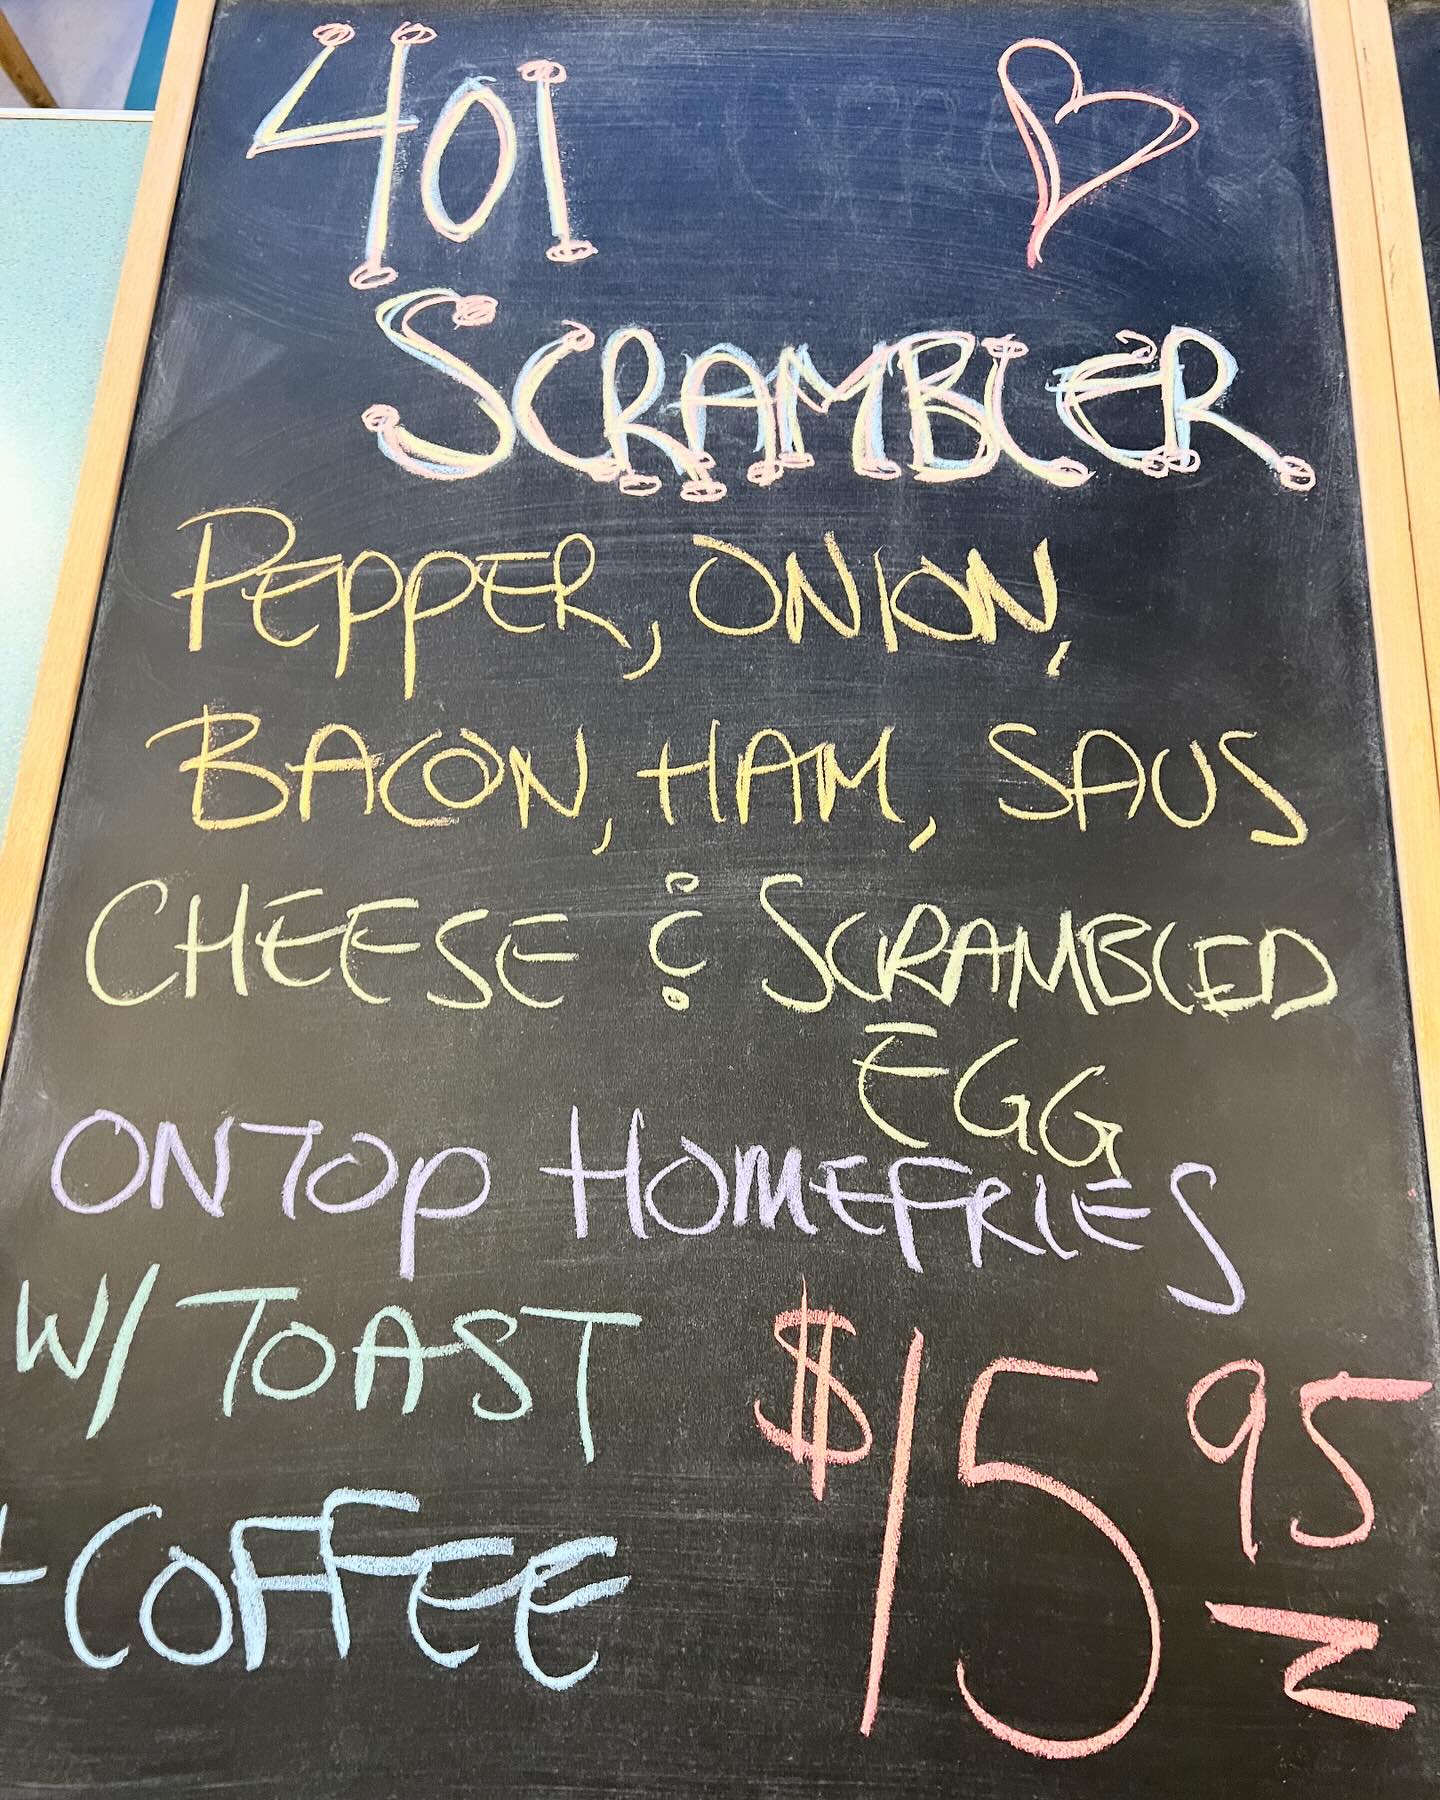 401
SCRAMBLER
PEPPER, ONION,
BACON, HAM, SAUS
CHEESE & SCRAMBLED
EGG
ONTOP HOMEFRIES
W/ TOAST
+COFFEE
$15 95